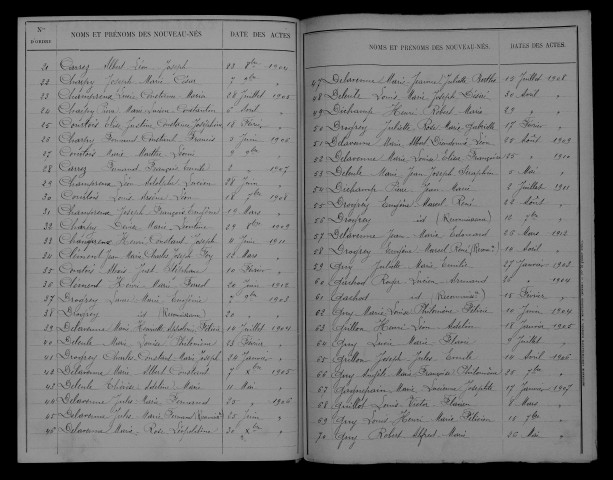 Nos D'ORDRE NOMS ET PRÉNOMS DES NOUVEAU-NÉS DATE DES ACTES
21 Carrez Albert Léon Joseph 23 8bre 1904
22 Charpy Joseph Marie César 7 9bre "
23 Champreux Louis Constance Marie 18 Juillet 1905
24 Charpy Marie Lucien Constantin Août "
25 Courtois Elise Justine Constance Joséphine 18 Février
26 Charpy Fernand Constant Francis 3 Juin 1906
27 Courtois Marie Marthe 9bre "
28 Carrez Fernand François Emile 2 1907
29 Champreux Léon Adolphe Lucien 28 Juin
30 Léon 18 7bre 1908
31 Champreux Joseph François Eugène 19 Mars "
32 Charpy Louise Marie 29 8bre 1909
33 Henri Constant Joseph 4 Juin 1911
34 Clément Jean Marie Charles Joseph 12 Mars "
35 Courtois Albert Just 10 Février
36 Clément Henri Marie 20 Juin 1912
37 Drogrey Louis Marie Eugène 7 9bre 1903
38 Drogrey id (Reconnaissance) 20 "
39 Delavenne Marie Henriette 10 Juillet 1904
40 Delule Marie Louise Philomène 23 Février
41 Drogrey Charles Constant Marie Joseph 24 Janvier
42 Delavenne Marie Albert Constant 7 Xbre 1905
43 Delule Adeline Marie 11 Mai "
44 Delavenne Jules Marie Fernand 25 " 1906
45 Delavenne Jules Marie Fernand 25 Juin
46 Delavenne Marie Rose Léopoldine 30 Xbre "
NOMS ET PRÉNOMS DES NOUVEAU-NÉS DATES DES ACTES.
47 Delavenne Marie Jeanne Juliette Berthe 13 Juillet 1908
48 Delule Louis Marie Joseph Désiré 30 Août "
49 Dichamp Henri Robert Marie 29 "
50 Drogrey Juliette Rose Marie Gabrielle 17 Février
51 Delavenne Marie Albert Léon 29 Août 1909
52 Delavenne Marie Louise Elise Françoise 25 " 1910
53 Delule Marie Jean Joseph Séraphin 5 Mai "
54 Dichamp Pierre Jean Marie 2 Juillet 1911
55 Drogrey Eugène Marcel René 22 Août "
56 Drogrey id (Reconnaissance) 12 7bre "
57 Delavenne Jean Marie Edouard 25 Mars 1912
58 Drogrey Eugène Marcel René 14 Avril "
59 Guy Juliette Marie Emilie 27 Janvier 1903
60 Gachod Roger Lucien Armand 25 " 1904
61 Gachod id (Reconnaissce) 15 Février "
62 Guy Marie Louise Philomène Félicie 10 Juin 1904
63 Guillon Henri Léon Adelin 18 Janvier 1905
64 Guy Lucie Marie 9 Juillet "
65 Guillon Joseph Jules Emile 14 Avril 1906
66 Guy Joseph Marie François Philomène 22 7bre "
67 Marie Louise Josèphe 17 Janvier 1907
68 Guillot Louis Victor Florian 8 Mars "
69 Guy Louis Henri Marie Félicien 18 7bre "
70 Guy Robert Alfred Marie 26 Mai "